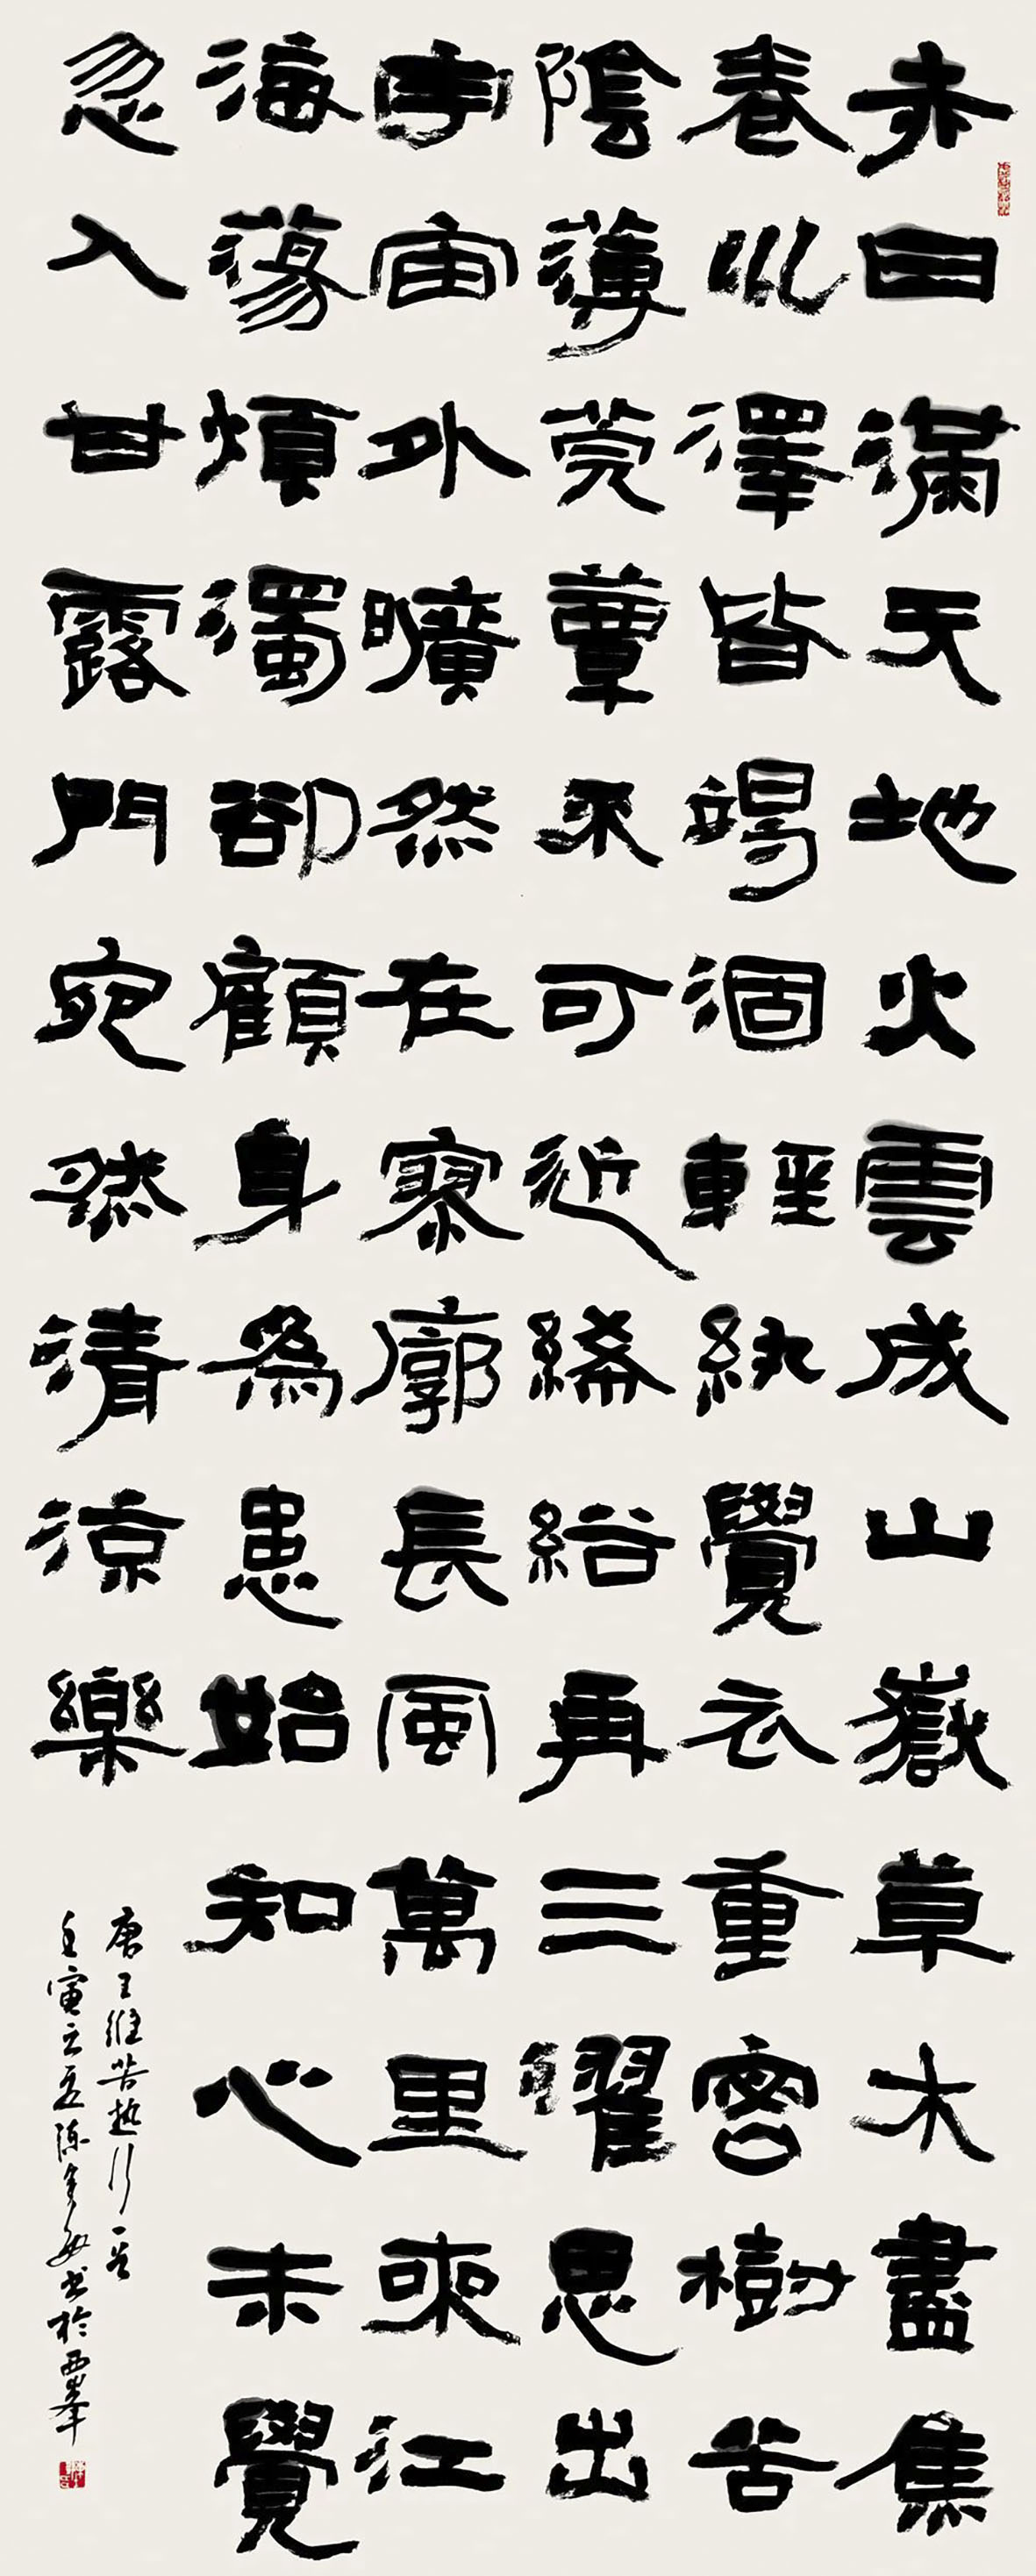 赤日滿天地火雲成山嶽草木盡焦
卷川澤皆竭涸輕紈覺衣重密樹苦
陰薄莞簟不可近絺綌再三濯思出
宇宙外曠然在寥廓長風萬里來江
海蕩煩濁卻顧身為患始知心未覺
忽入甘露門宛然清涼樂
唐王維苦熱行一首
壬寅之夏陳書於西峯